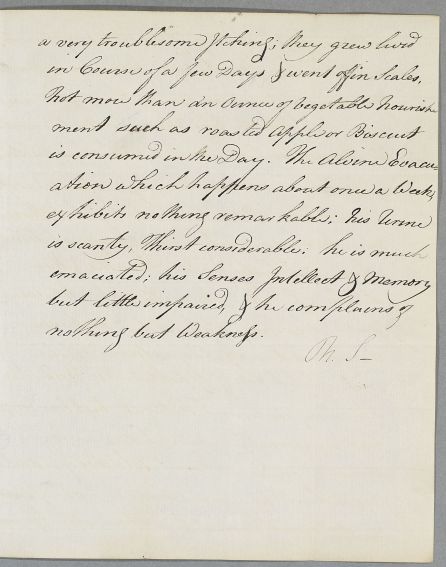 a very troublesome Itching; they grew livid
in Course of a few Days & went off in Scales,
Not more than an ounce of vegetable Nourish
ment such as roasted Apple or Biscuit
is consumed in the Day. The Alvine Evacu-
ation which happens about once a Week,
exhibits nothing remarkable; his Urine
is scanty, Thirst considerable; he is much
emaciated; his Senses Intellect & Memory
but little impaired, & he complains of
nothing but Weakness.
Th. S-